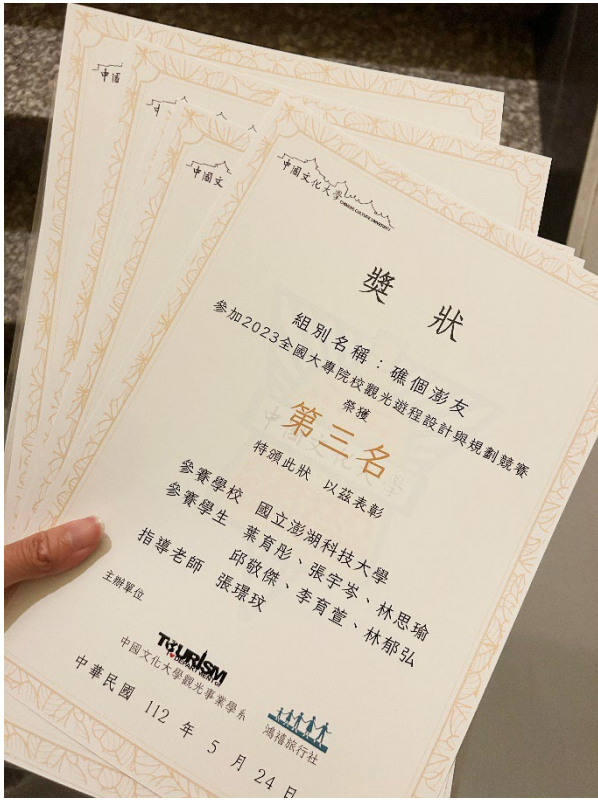 中國
中國文
中國文化大學
CHINESE CULTURE UNIVERSITY
獎狀
組別名稱：礁個澎友
參加2023全國大專院校觀光遊程設計與規劃競賽
榮獲
第三名
特頒此狀 以茲表彰
參賽學校 國立澎湖科技大學
參賽學生 葉育彤、張宇岑、林思瑜
邱敬傑、李育萱、林郁弘
指導老師 張璟玟
主辦單位
TOURISM
DEPARTMENT OF
中國文化大學觀光事業學系
鴻禧旅行社
中華民國 112 年 5 月 24 日